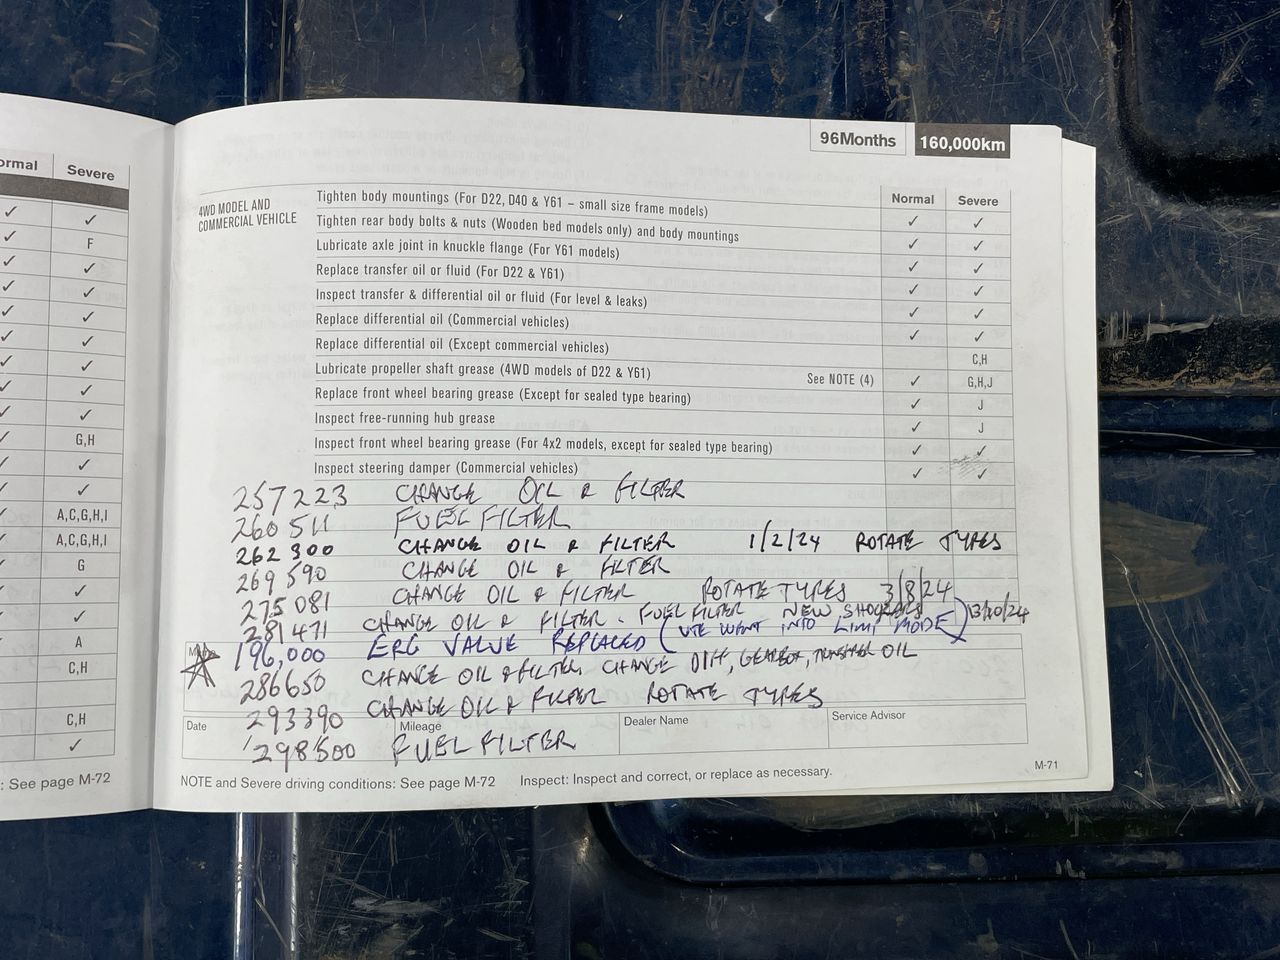 ormal Severe
✓ ✓
✓ F
✓ ✓
✓ ✓
✓ ✓
✓ ✓
✓ ✓
✓ ✓
✓ ✓
G,H
✓ ✓
✓ ✓
A,C,G,H,I
A,C,G,H,I
G
✓
✓
A
C,H
C,H
✓
: See page M-72
96Months 160,000km
4WD MODEL AND COMMERCIAL VEHICLE
Normal Severe
Tighten body mountings (For D22, D40 & Y61 – small size frame models) ✓ ✓
Tighten rear body bolts & nuts (Wooden bed models only) and body mountings ✓ ✓
Lubricate axle joint in knuckle flange (For Y61 models) ✓ ✓
Replace transfer oil or fluid (For D22 & Y61) ✓ ✓
Inspect transfer & differential oil or fluid (For level & leaks) ✓ ✓
Replace differential oil (Commercial vehicles) ✓ ✓
Replace differential oil (Except commercial vehicles) C,H
Lubricate propeller shaft grease (4WD models of D22 & Y61) See NOTE (4) ✓ G,H,J
Replace front wheel bearing grease (Except for sealed type bearing) ✓ J
Inspect free-running hub grease ✓ J
Inspect front wheel bearing grease (For 4x2 models, except for sealed type bearing) ✓ ✓
Inspect steering damper (Commercial vehicles) ✓ ✓
257223 CHANGE OIL & FILTER
260511 FUEL FILTER
262300 CHANGE OIL & FILTER 1/2/24 ROTATE TYRES
269590 CHANGE OIL & FILTER
275081 CHANGE OIL & FILTER ROTATE TYRES 3/8/24
281471 CHANGE OIL & FILTER. FUEL FILTER NEW SHOCKERS
196,000 ERG VALVE REPLACED (UTE WENT INTO LIMI MODE) 13/10/24
286650 CHANGE OIL & FILTER, CHANGE DIFF, GEARBOX, TRANSFER OIL
293390 CHANGE OIL & FILTER ROTATE TYRES
298500 FUEL FILTER
Date Mileage Dealer Name Service Advisor
NOTE and Severe driving conditions: See page M-72 Inspect: Inspect and correct, or replace as necessary.
M-71